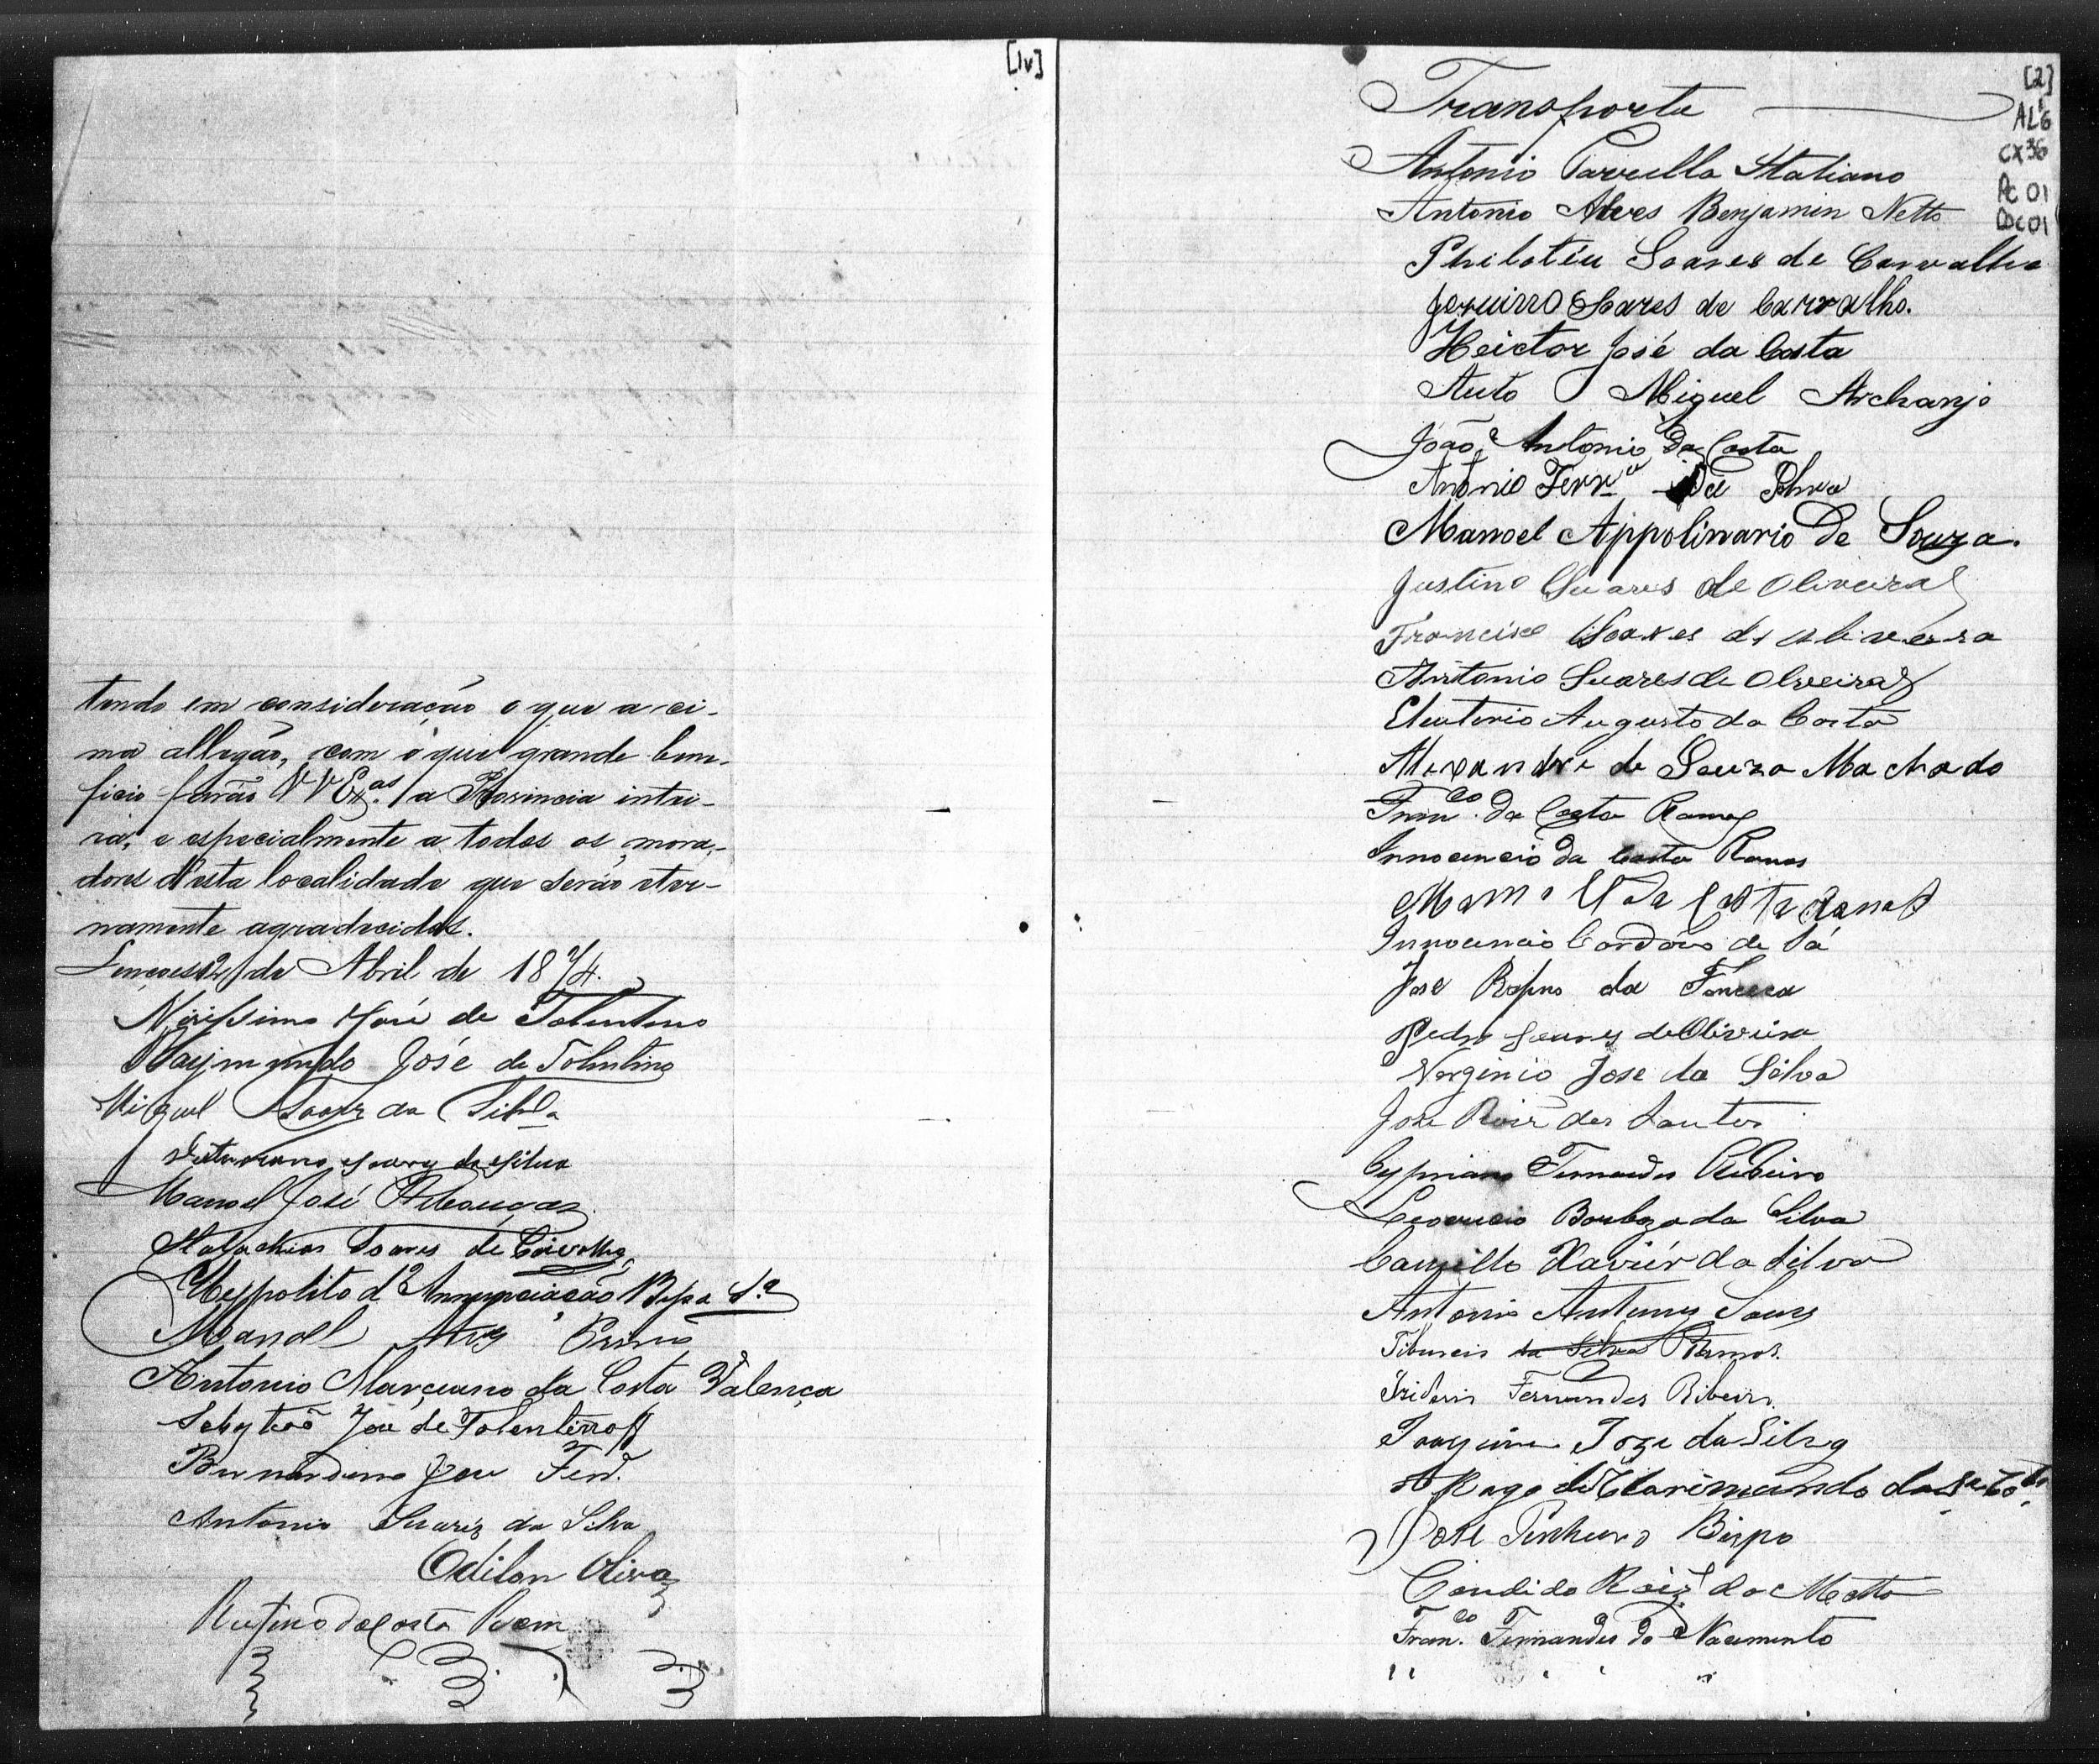 [1v]
tendo em consideração o que a ci-
ma allegão, com o que grande bene-
ficio farão VV Exas. a Provincia intei-
ra, e especialmente a todos os mora-
dores desta localidade que serão eter-
namente agradecidos.
Lençoes 12 de Abril de 1874.
Virissimo José de Tolentino
Raymundo José de Tolintino
Miguel Soares da Silva
Soares da Silva
Manoel José Rebouças
Malachias Soares de Carvalho
Hyppolito d'Annunciação Bispo
Manoel Alves
Antonio Marciano da Costa Valença
José de Tolentino
Bernardino José Ferr.
Antonio Suares da Silva
Odilon Oliva
Rufino da Costa Bem
[2]
AL6
CX36
Pc 01
Dc 01
Transporte
Antonio Parrella Italiano
Antonio Alves Benjamin Netto
Philotéu Soares de Carvalho
Soares de Carvalho.
Heictor José da Costa
Auto Miguel Archanjo
João Antonio da Costa
Antonio Ferra Da Silva
Manoel Appolinario De Souza.
Justino Suares de Oliveira
Francisco Soares de Oliveira
Antonio Suares de Olveira
Eleuterio Augusto da Costa
Alexandre de Souza Machado
Franco. da Costa Ramos
Innocencio da Costa Ramos
da Costa Ramos
Innocencio Cardozo de Sá
José Rofino da Fonceca
Pedro Soares de Oliveira
Verginio Jose da Silva
José Roiz dos Santos
Cypriano Fernandes Ribeiro
Leoncio Barboza da Silva
Camillo Xavier da Silva
Antonio Antunes Soares
Tiburcio da Silva Ramos.
Izidorio Fernandes Ribeiro.
Joaquim Joze da Silva
A Rogo de Clarimundo da
José Pinheiro Bispo
Candido Roiz da Matto
Franco. Fernandes do Nacimento